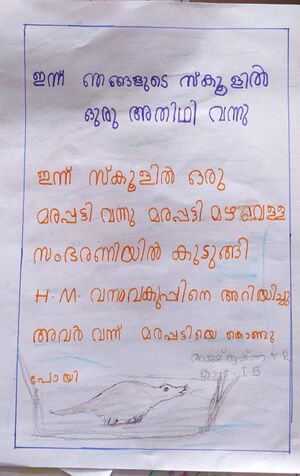 ഇന്ന് ഞങ്ങളുടെ സ്കൂളിൽ
ഒരു അതിഥി വന്നു
ഇന്ന് സ്കൂളിൽ ഒരു
മരപ്പട്ടി വന്നു മരപ്പട്ടി മഴവെള്ള
സംഭരണിയിൽ കുടുങ്ങി
H.M. വനംവകുപ്പിനെ അറിയിച്ചു
അവർ വന്ന് മരപ്പട്ടിയെ കൊണ്ടു
പോയി
V R
ക്ലാസ് - I B